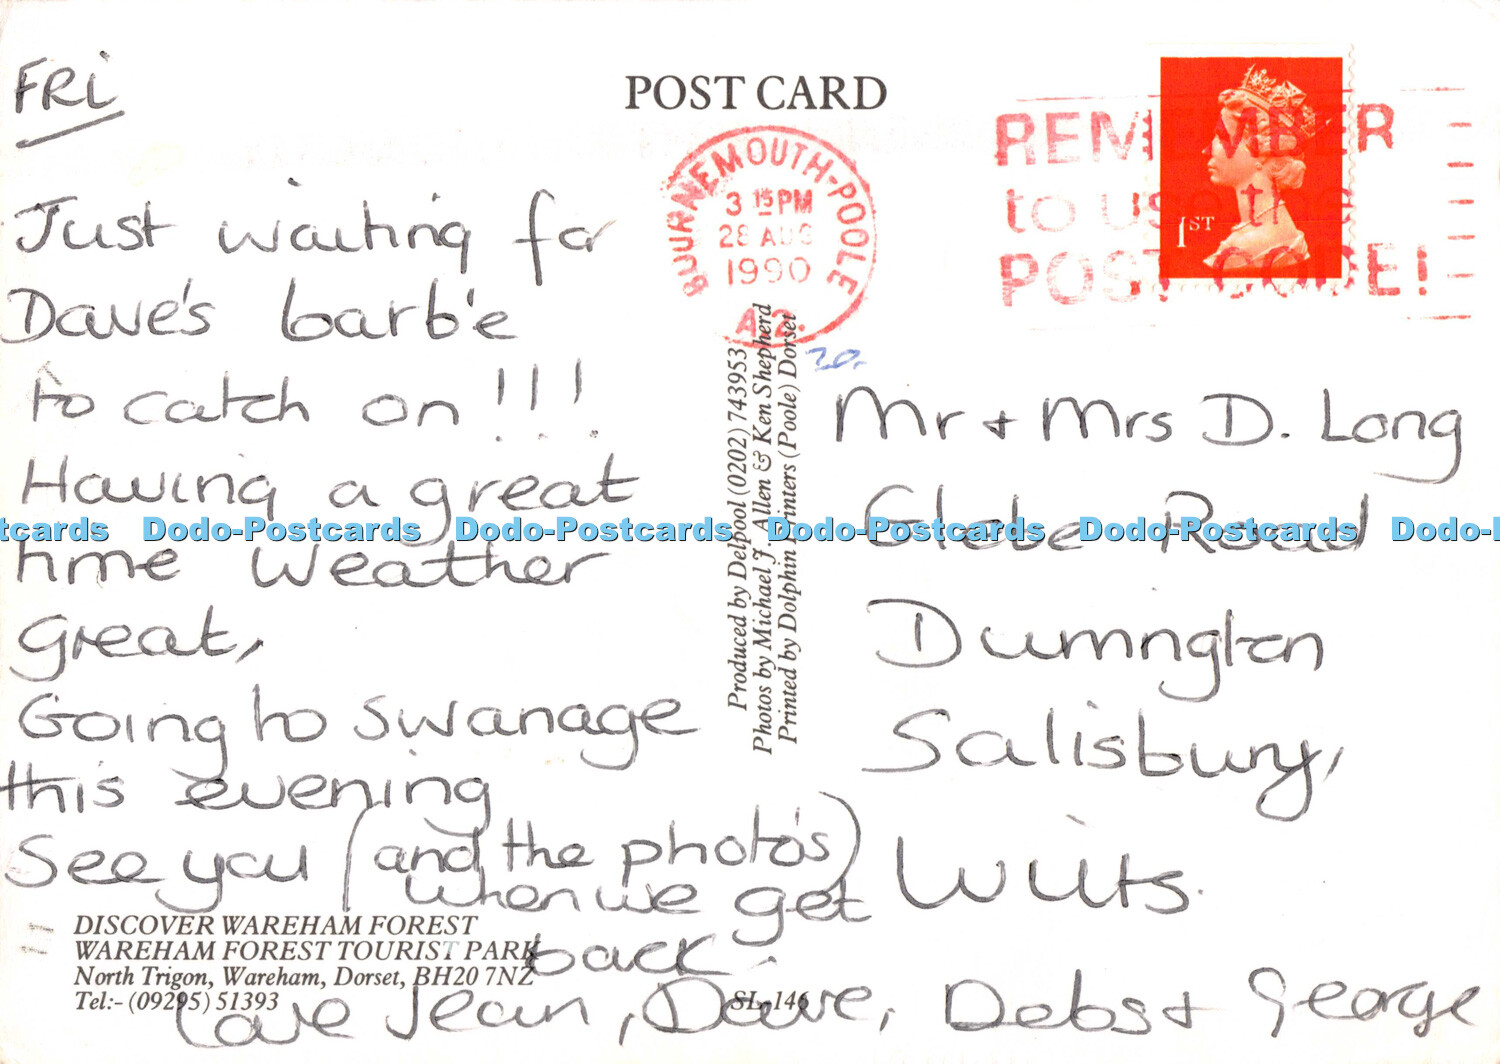 FRi
Just waiting for
Dave's barb'e
to catch on !!!
Having a great
time Weather
great,
Going to Swanage
this evening
See you (and the photo's)
when we get
back.
Love Jean, Dave, Debs + George
DISCOVER WAREHAM FOREST
WAREHAM FOREST TOURIST PARK
North Trigon, Wareham, Dorset, BH20 7NZ
Tel:- (09295) 51393
SL-146
POST CARD
Produced by Delpool (0202) 743953
Photos by Michael J. Allen & Ken Shepherd
Printed by Dolphin Printers (Poole) Dorset
BOURNEMOUTH-POOLE
3 15 PM
28 AUG
1990
A.2.
REMEMBER
to use the
POST CODE!
1ST
20.
Mr + Mrs D. Long
Glebe Road
Durrington
Salisbury,
Wilts.
tcards Dodo-Postcards Dodo-Postcards Dodo-Postcards Dodo-Postcards Dodo-